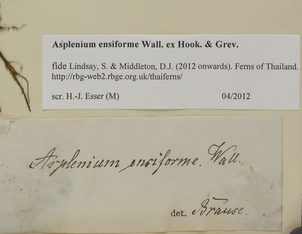 Asplenium ensiforme Wall. ex Hook. & Grev.
fide Lindsay, S. & Middleton, D.J. (2012 onwards). Ferns of Thailand.
http://rbg-web2.rbge.org.uk/thaiferns/
scr. H.-J. Esser (M) 04/2012
Asplenium ensiforme. Wall.
det. Brause.